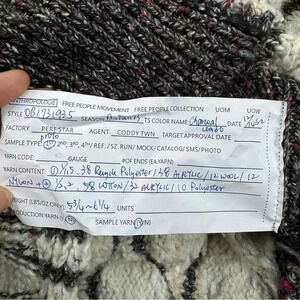 ANTHROPOLOGIE FREE PEOPLE MOVEMENT FREE PEOPLE COLLECTION UOM UOW
STYLE OB1731935 SEASON TS COLOR NAME Charcoal combo DATE
FACTORY PEPESTAR AGENT CODDY TWN TARGET APPROVAL DATE
proto
SAMPLE TYPE 1ST, 2ND, 3RD, 4TH / REF./SZ. RUN / MOCK/CATALOG/SMS/PHOTO
YARN CODE GAUGE # OF ENDS (EA.YARN)
YARN CONTENT: ① 1/1.5, 38 Recycle Polyester / 38 ACRYLIC / 12 WOOL / 12
NYLON + ② 1/3.2, 58 COTTON / 32 ACRYLIC / 10 Polyester
WEIGHT (LBS/DZ.ONLY) 5 3/4 ~ 6 1/4 UNITS
PRODUCTION YARN SAMPLE YARN (Y/N)